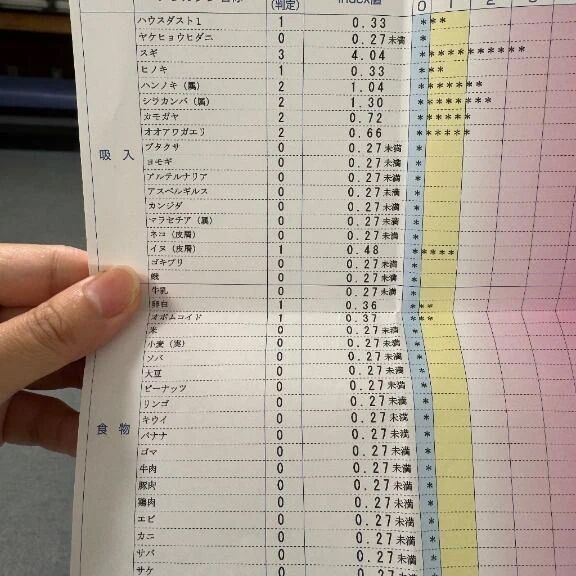 (判定) index値 0 1 2 3
ハウスダスト1 1 0.33 ***
ヤケヒョウヒダニ 0 0.27未満 *
スギ 3 4.04 ***************
ヒノキ 1 0.33 ***
ハンノキ(属) 2 1.04 *********
シラカンバ(属) 2 1.30 **********
カモガヤ 2 0.72 *******
オオアワガエリ 2 0.66 *******
ブタクサ 0 0.27未満 *
吸入
ヨモギ 0 0.27未満 *
アルテルナリア 0 0.27未満 *
アスペルギルス 0 0.27未満 *
カンジダ 0 0.27未満 *
マラセチア(属) 0 0.27未満 *
ネコ(皮屑) 0 0.27未満 *
イヌ(皮屑) 1 0.48 *****
ゴキブリ 0 0.27未満 *
蛾 0 0.27未満 *
牛乳 0 0.27未満 *
卵白 1 0.36 ***
オボムコイド 1 0.37 ***
米 0 0.27未満 *
小麦(実) 0 0.27未満 *
ソバ 0 0.27未満 *
大豆 0 0.27未満 *
ピーナッツ 0 0.27未満 *
リンゴ 0 0.27未満 *
食物
キウイ 0 0.27未満 *
バナナ 0 0.27未満 *
ゴマ 0 0.27未満 *
牛肉 0 0.27未満 *
豚肉 0 0.27未満 *
鶏肉 0 0.27未満 *
エビ 0 0.27未満 *
カニ 0 0.27未満 *
サバ 0 0.27未満 *
サケ 0 0.27未満 *